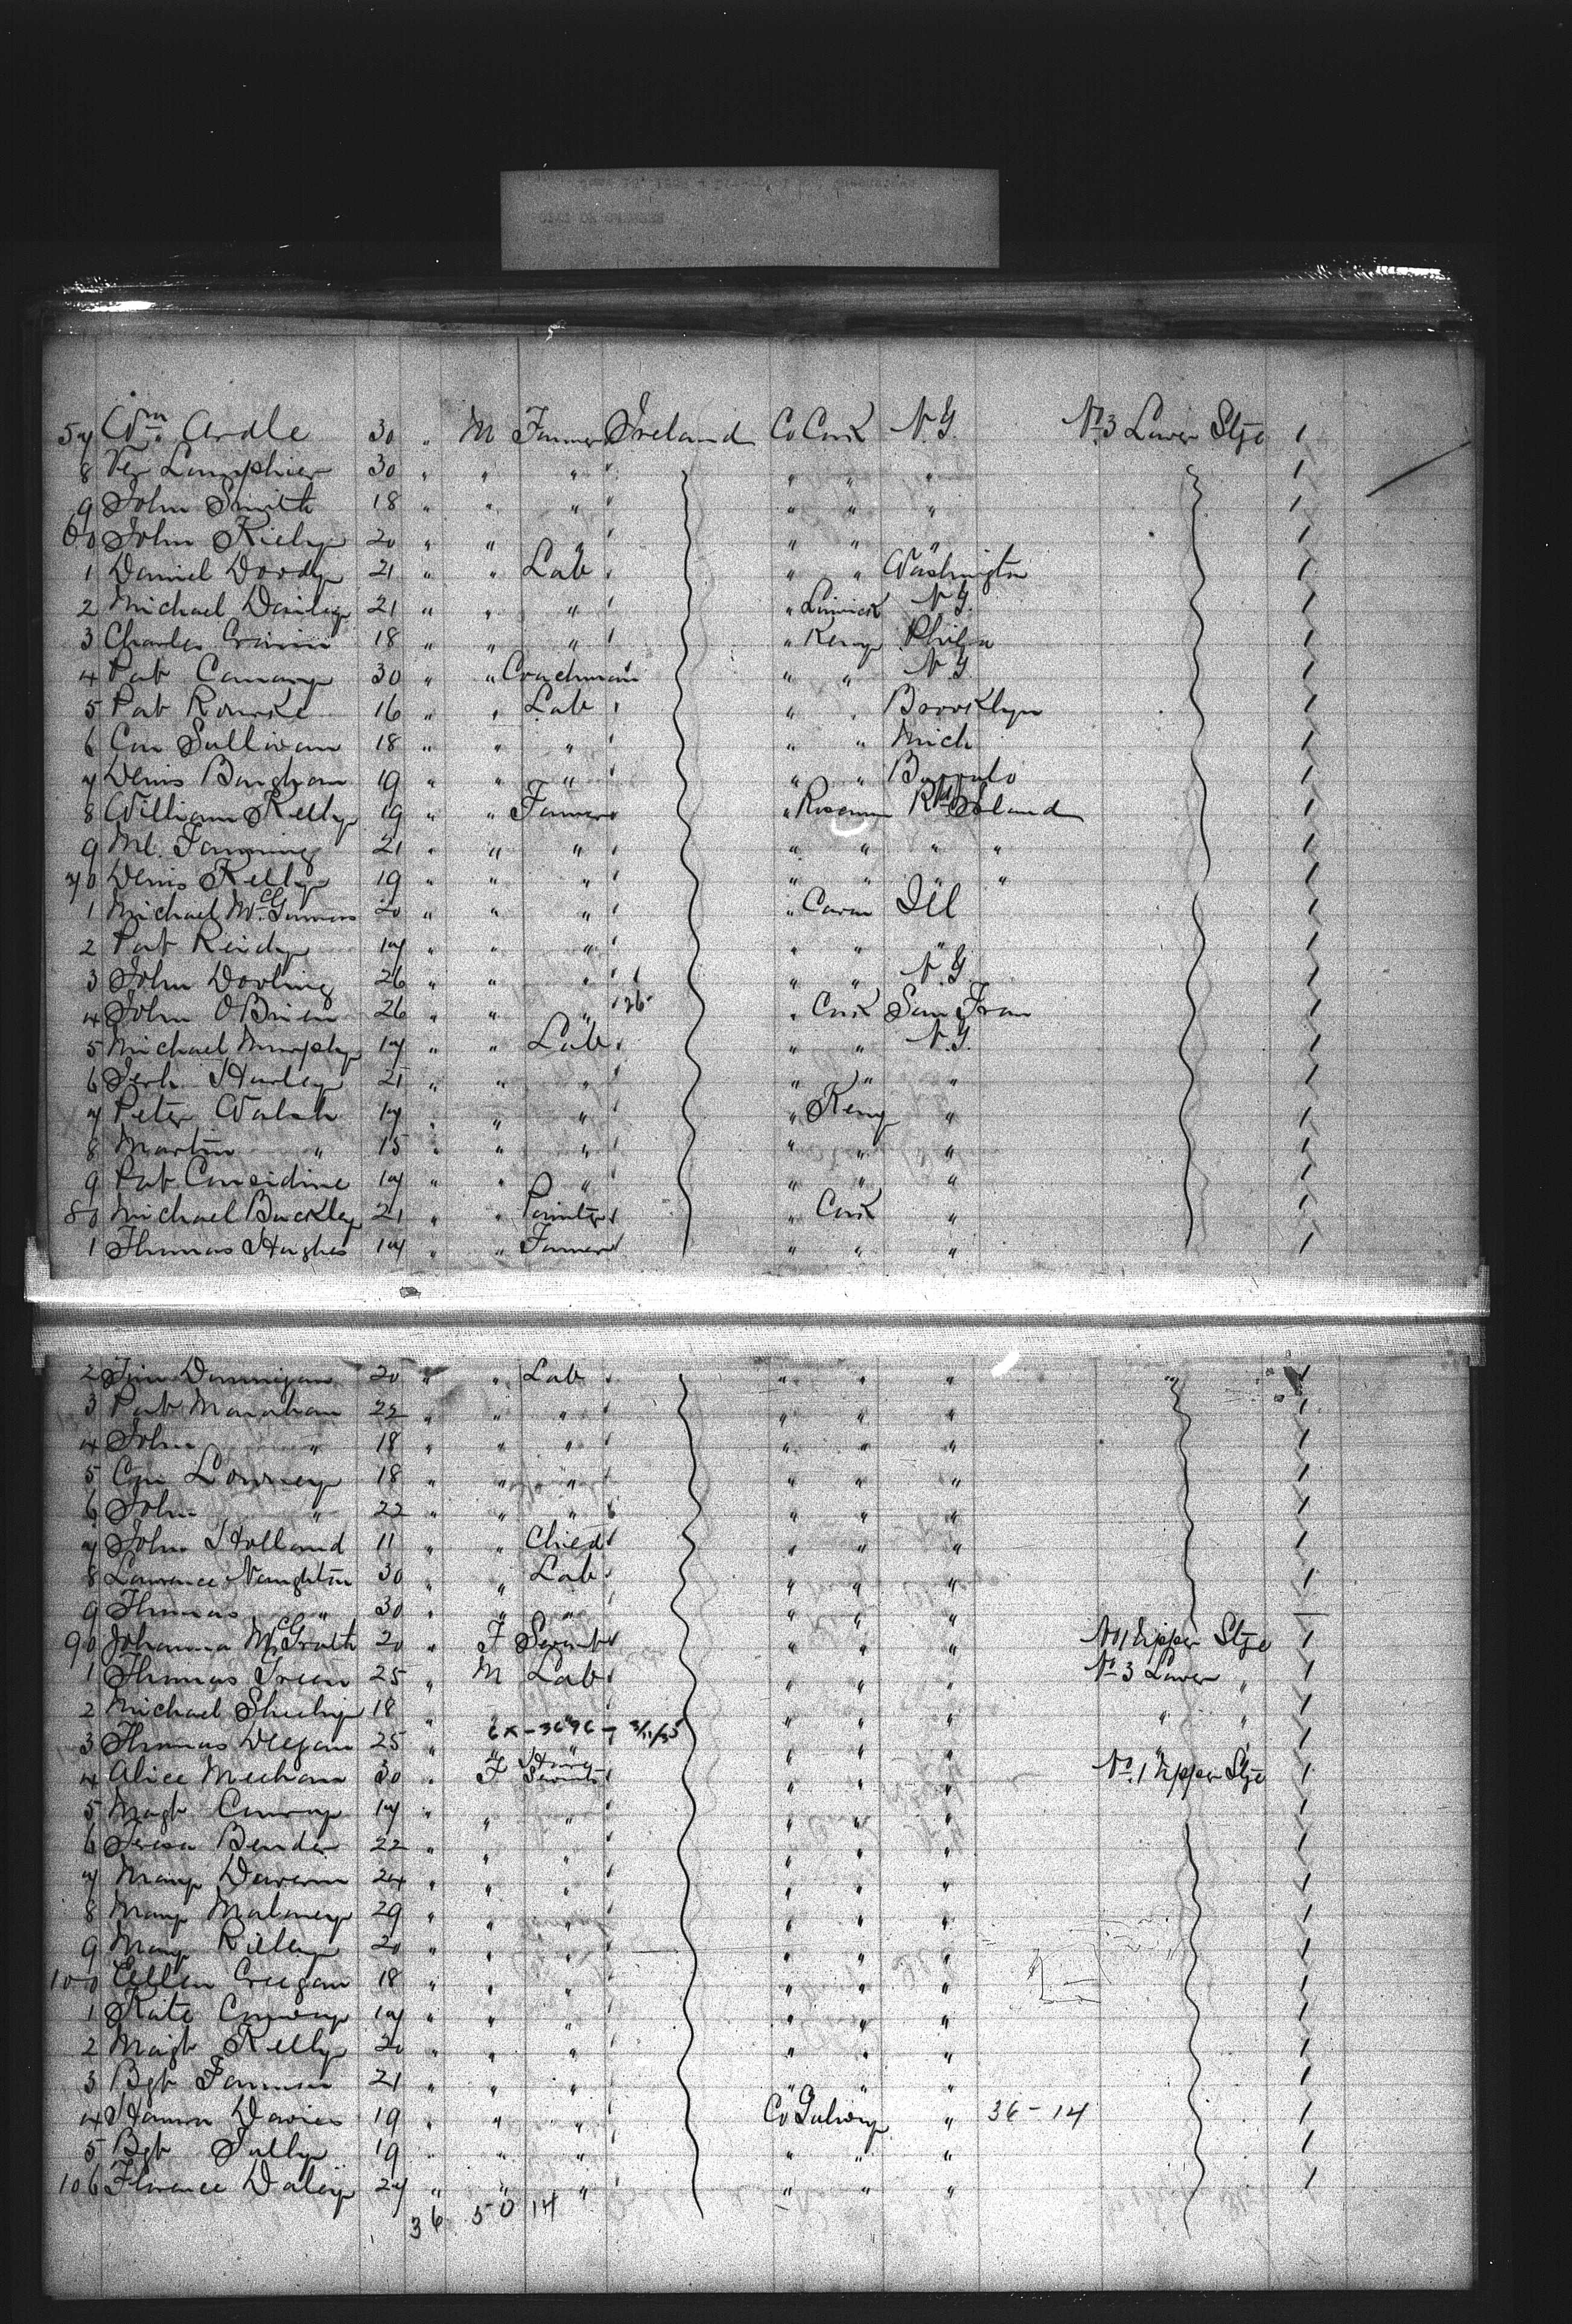 57 Wm Ardle 30 " M Farmer Ireland Co Cork N.Y. No 3 Lower Stge 1
8 Lamphier 30 " " " " " " 1
9 John Smith 18 " " " " " " 1
60 John Rieley 20 " " " " " " 1
1 Daniel Doody 21 " " Lab " " Washington 1
2 Michael Dailey 21 " " " " Limrick N.Y. 1
3 Charles Cronin 18 " " " " Kerry Phila 1
4 Pat 30 " " Coachman " " N.Y. 1
5 Pat Rourke 16 " " Lab " " Brooklyn 1
6 Con Sullivan 18 " " " " " Mich 1
7 Denis Bingham 19 " " " " " Buffalo 1
8 William Kelly 19 " " Farmer " Roscmn Rd Island 1
9 Ml. Fanning 21 " " " " " " " 1
70 Denis Kelly 19 " " " " " " " 1
1 Michael McG 20 " " " " Cavan Ill 1
2 Pat Reidy 17 " " " " " " 1
3 John Dowling 26 " " " " " N.Y. 1
4 John OBrien 26 " " " 26 " Cork San Fran 1
5 Michael Murphy 17 " " Lab " " N.Y. 1
6 Jerh. Hurley 21 " " " " " " 1
7 Peter Walsh 17 " " " " Kerry " 1
8 Martin " 15 " " " " " " 1
9 Pat Considine 17 " " " " " " 1
80 Michael Buckley 21 " " Painter " Cork " 1
1 Thomas Hughes 17 " " Farmer " " " 1
2 Jim Dunnigan 20 " " Lab " " " " 1
3 Pat Manahan 22 " " " " " " 1
4 John " 18 " " " " " " 1
5 Con Lowney 18 " " " " " " 1
6 John " 22 " " " " " " 1
7 John Holland 11 " " Child " " " 1
8 Lawrence Naughton 30 " " Lab " " " 1
9 Thomas " 30 " " " " " "
90 Johanna McGrath 20 " F Servant " " " No 1 Upper Stge 1
1 Thomas Green 25 " M Lab " " " No 3 Lower " 1
2 Michael Sheehy 18 " " " " " " " " 1
6x-3696-
3 Thomas Deegan 25 " " " " " " " " 1
4 Alice Meehan 30 " F Servant " " " No. 1 Upper Stge 1
5 Magt Conroy 17 " " " " " " 1
6 Teresa Bender 22 " " " " " " 1
7 Mary Davern 24 " " " " " " 1
8 Mary Maloney 29 " " " " " " 1
9 Mary Rieley 20 " " " " " " 1
100 Ellen Creegan 18 " " " " " " 1
1 Kate Conway 17 " " " " " " 1
2 Magt Kelly 20 " " " " " " 1
3 Bgt 21 " " " " " " 1
4 Davies 19 " " " Co Galway " 36-14 1
5 Bgt Tully 19 " " " " " " 1
106 Florence Daley 27 " " " " " " 1
36 50 14